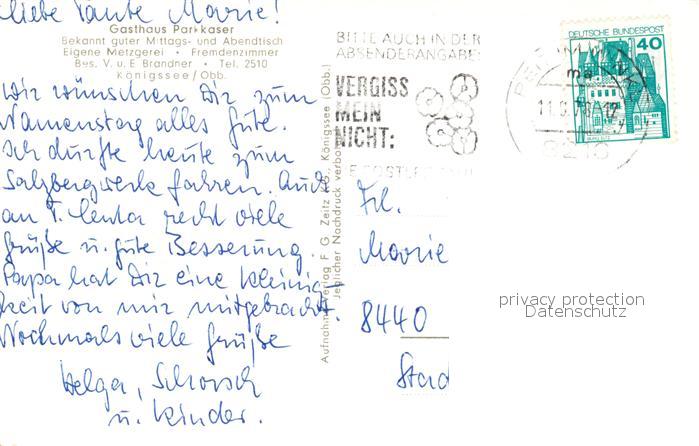 Liebe Tante Marie!
Gasthaus Parkkaser
Bekannt guter Mittags- und Abendtisch
Eigene Metzgerei • Fremdenzimmer
Bes. V. u. E Brandner • Tel. 2510
Königssee/Obb.
Wir wünschen Dir zum
Namenstag alles Gute.
Ich durfte heute zum
Salzbergwerk fahren. Auch
an T. Centa recht viele
Grüße u. gute Besserung.
Papa hat Dir eine Kleinig-
keit von mir mitgebracht.
Nochmals viele Grüße
Helga, Schorsch
u. Kinder.
Aufnahme Verlag F G Zeitz KG., Königssee (Obb.)
Jeglicher Nachdruck verboten
BITTE AUCH IN DER
ABSENDERANGABE
VERGISS
MEIN
NICHT:
DEUTSCHE BUNDESPOST
40
Frl.
Marie
8440
privacy protection
Datenschutz